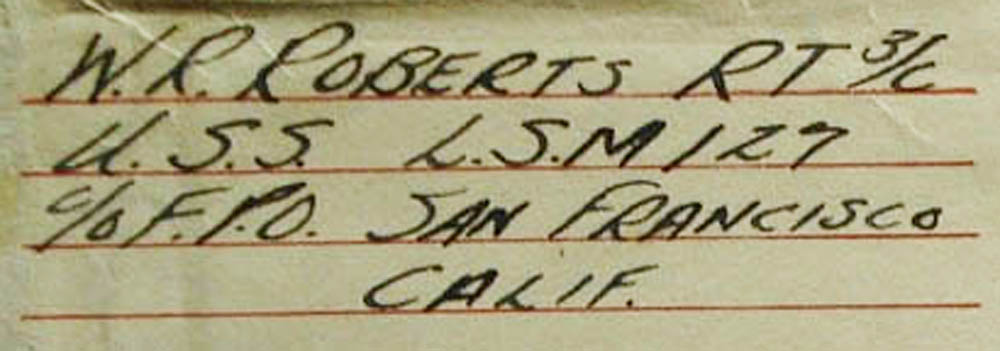 W.R. ROBERTS RT 3/C
U.S.S. L.S.M 127
c/o F.P.O. SAN FRANCISCO
CALIF.